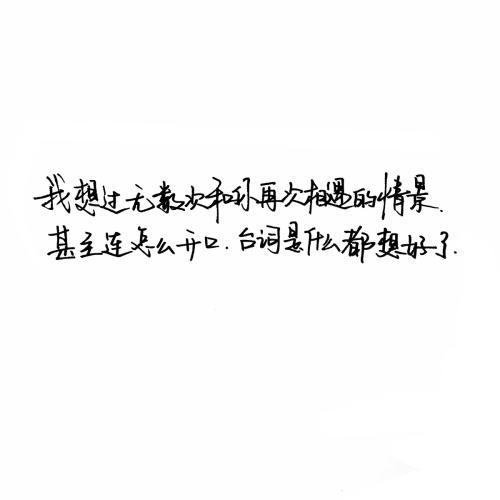 我想过无数次和你再次相遇的情景.
甚至连怎么开口.台词是什么都想好了.